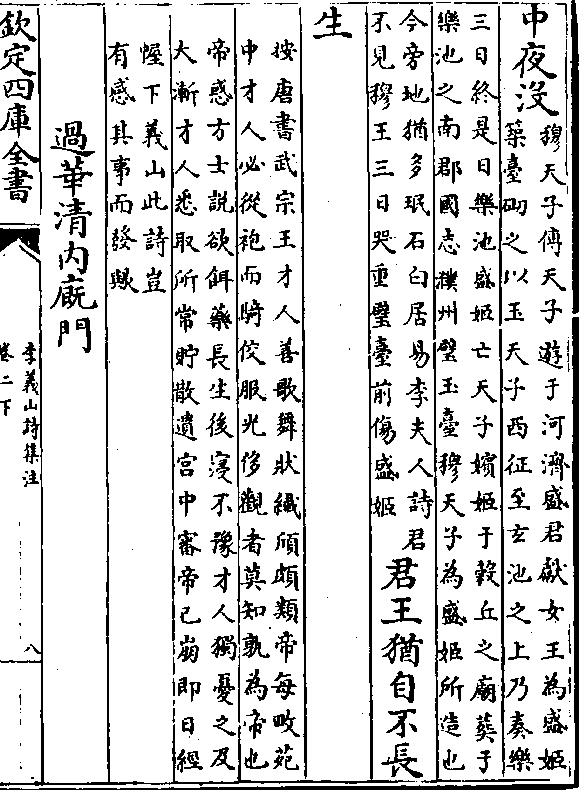 中夜没
穆天子傳天子遊于河濟盛君獻女王為盛姬
築臺砌之以玉天子西征至玄池之上乃奏樂
三日終是日樂池盛姬亡天子嬪姬于穀丘之廟葬于
樂池之南郡國志濮州璧玉臺穆天子為盛姬所造也
今旁地猶多珉石白居易李夫人詩君
不見穆王三日哭重璧臺前傷盛姬
君王猶自不長
生
按唐書武宗王才人善歌舞狀纖頎頗類帝每畋苑
中才人必從袍而騎佼服光侈觀者莫知孰為帝也
帝惑方士說欲餌藥長生後寖不豫才人獨憂之及
大漸才人悉取所常貯散遺宮中審帝已崩即日經
幄下義山此詩豈
有感其事而發歟
過華清内廐門
欽定四庫全書
李義山詩集注
卷二下
八